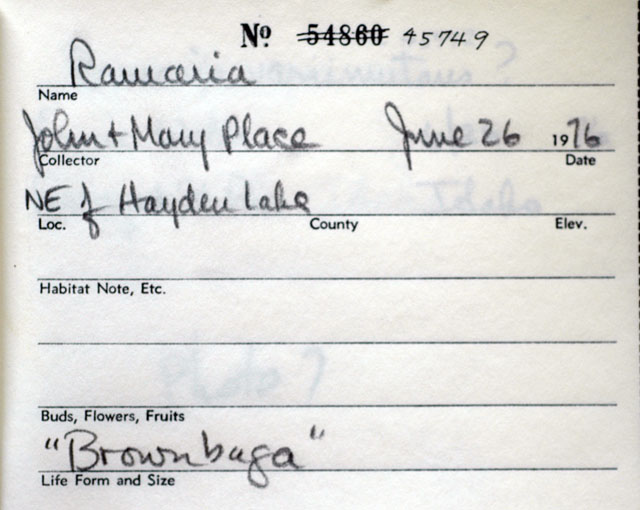 Nº 54860 45749
Ramaria
Name
John + Mary Place June 26 1976
Collector Date
NE of Hayden Lake
Loc. County Elev.
Habitat Note, Etc.
Buds, Flowers, Fruits
"Brownbaga"
Life Form and Size